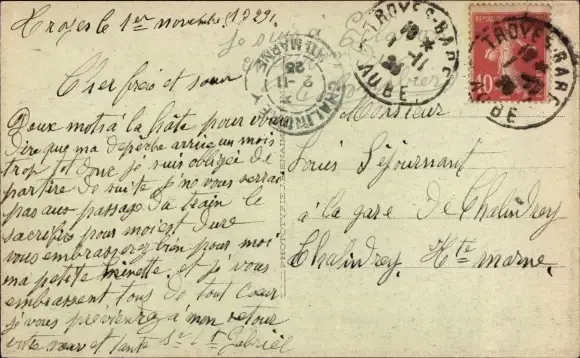 Troyes le 1er novembre (1929)
Cher frère et sœur
Deux mots à la hâte pour vous
dire que ma depeche arrive un mois
trop tot donc je suis obligé de
partire de suite je ne vous verrai
pas aux passage du train le
sacrifice pour moi est dure
vous embrasserez bien pour moi
ma petite Ginette et je vous
embrassent tous de tout cœur
je vous previendré a mon retour
votre sœur et tante Sr St Gabriel
Je suis à
TROYES-GARE
AUBE
CHALINDREY
HTE MARNE
Monsieur
Louis Séjournant
à la gare De Chalindrey
Chalindrey. Hte marne.